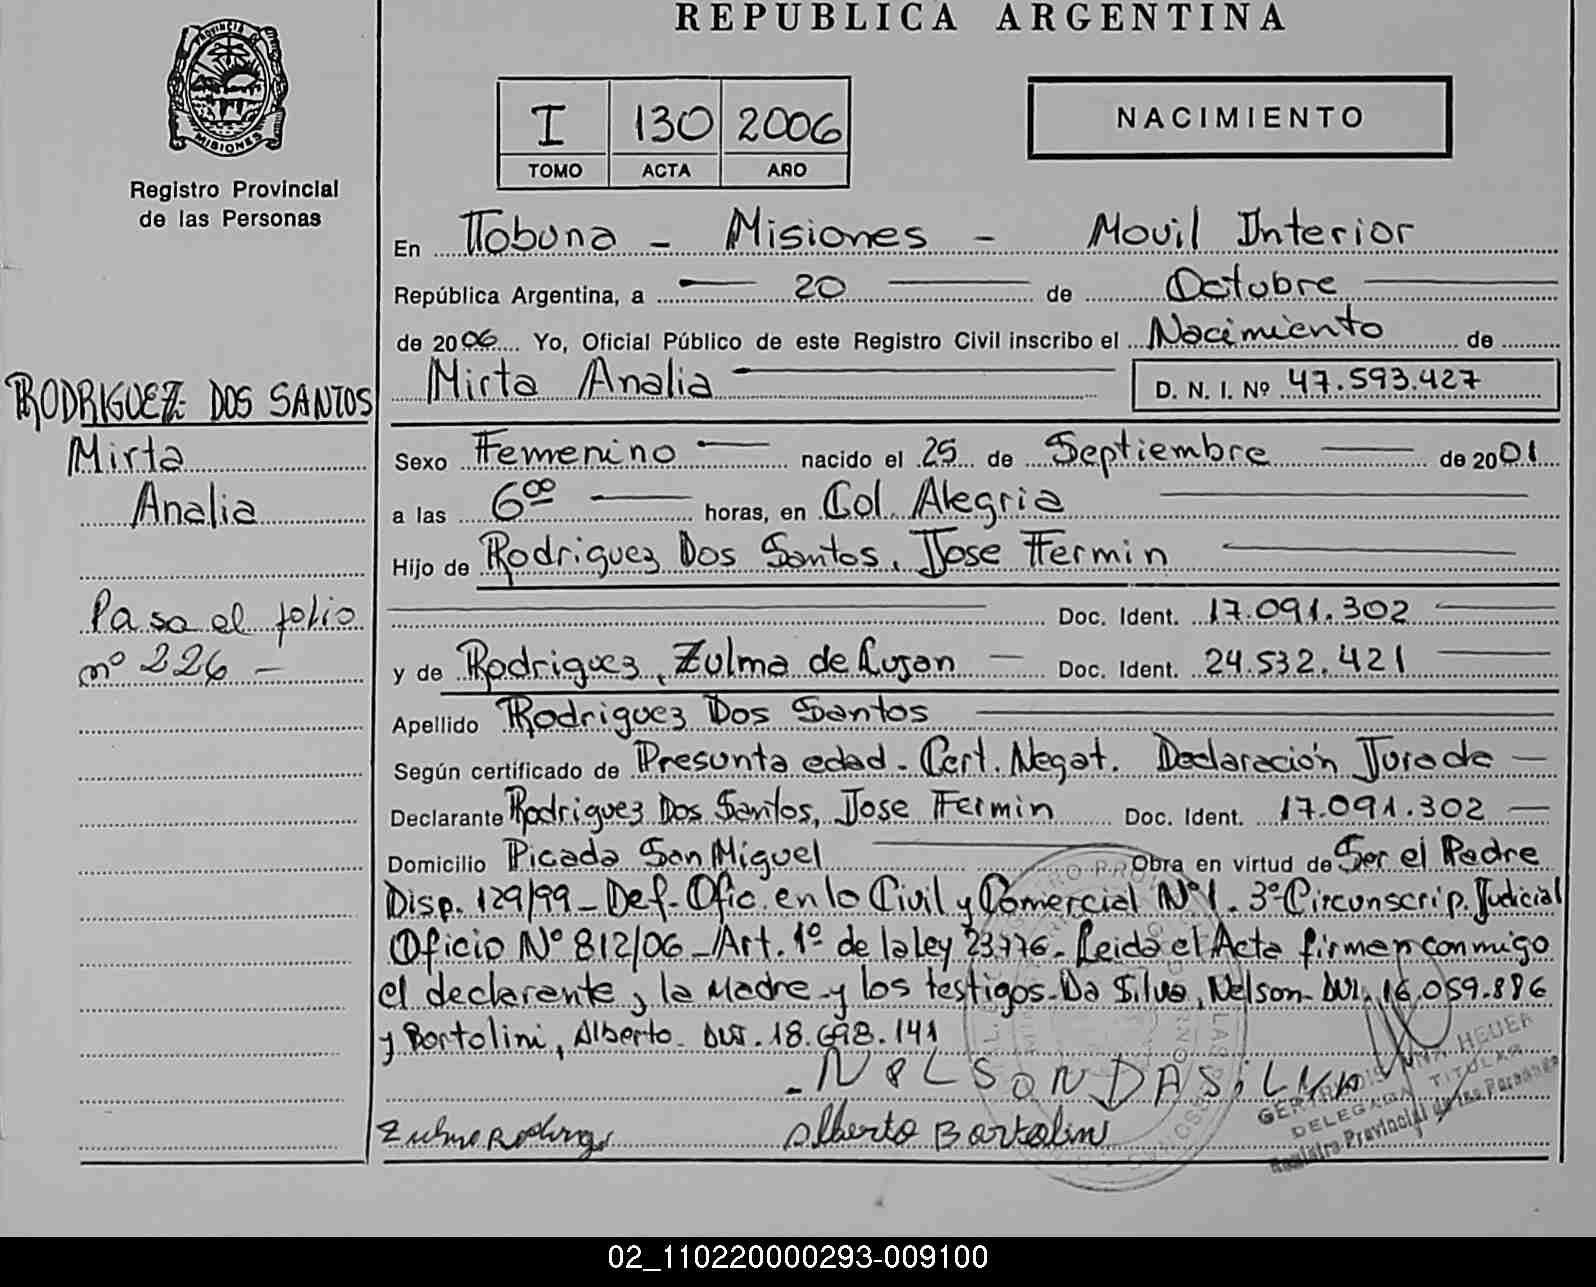 REPUBLICA ARGENTINA
PROVINCIA DE
MISIONES
Registro Provincial
de las Personas
I 130 2006
TOMO ACTA AÑO
NACIMIENTO
En Tobuna - Misiones - Movil Interior
República Argentina, a 20 de Octubre
de 2006 Yo, Oficial Público de este Registro Civil inscribo el Nacimiento de
Mirta Analia D. N. I. Nº 47.593.427
RODRIGUEZ DOS SANTOS
Mirta
Analia
Pasa al folio
nº 226 -
Sexo Femenino nacido el 25 de Septiembre de 2001
a las 600 horas, en Col. Alegria
Hijo de Rodriguez Dos Santos, Jose Fermin
Doc. Ident. 17.091.302
y de Rodriguez, Zulma de Lujan - Doc. Ident. 24.532.421
Apellido Rodriguez Dos Santos
Según certificado de Presunta edad - Cert. Negat. Declaración Jurada -
Declarante Rodriguez Dos Santos, Jose Fermin Doc. Ident. 17.091.302
Domicilio Picada San Miguel Obra en virtud de Ser el Padre
Disp. 129/99 - Def. Ofic. en lo Civil y Comercial Nº 1. 3º Circunscrip. Judicial
Oficio Nº 812/06 - Art. 1º de la ley 23.776 - Leida el Acta firman conmigo
el declarante, la Madre y los testigos - Da Silva, Nelson - DNI. 16.059.886
y Bortolini, Alberto - DNI. 18.698.141
- NELSON DA SILVA
Zulma Rodrigz alberto Bortolini
GERTRUDIS ANA HEUER
DELEGADA TITULAR
Registro Provincial de las Personas
02_110220000293-009100